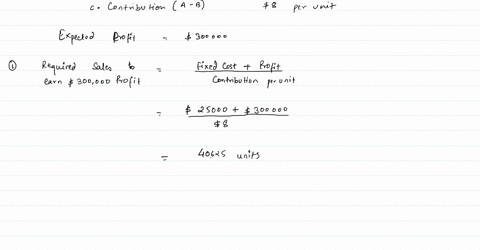 c. Contribution (A-B) $8 per unit
Expected Profit = $300000
① Required Sales to = Fixed Cost + Profit
earn $300,000 Profit Contribution per unit
= $25000 + $300000
$8
= 40625 units